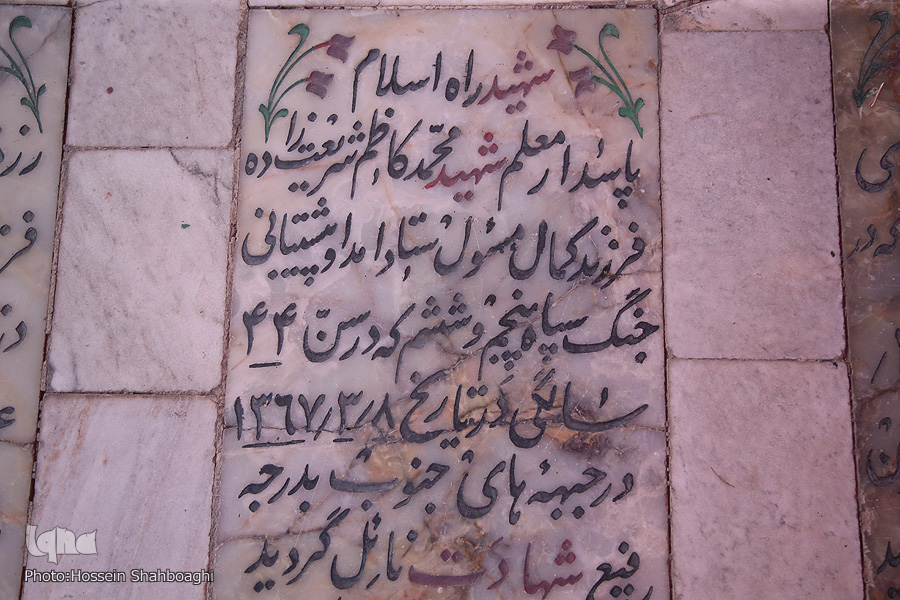 شهید راه اسلام
پاسدار معلم شهید محمد کاظم شریعت زاده
فرزند کمال مسئول ستاد امداد و پشتیبانی
جنگ سپاه پنجم و ششم که در سنّ ۴۴
سالگی در تاریخ ۱۳۶۷/۳/۸
در جبهه های جنوب بدرجه
رفیع شهادت نائل گردید
iqna
Photo:Hossein Shahboaghi